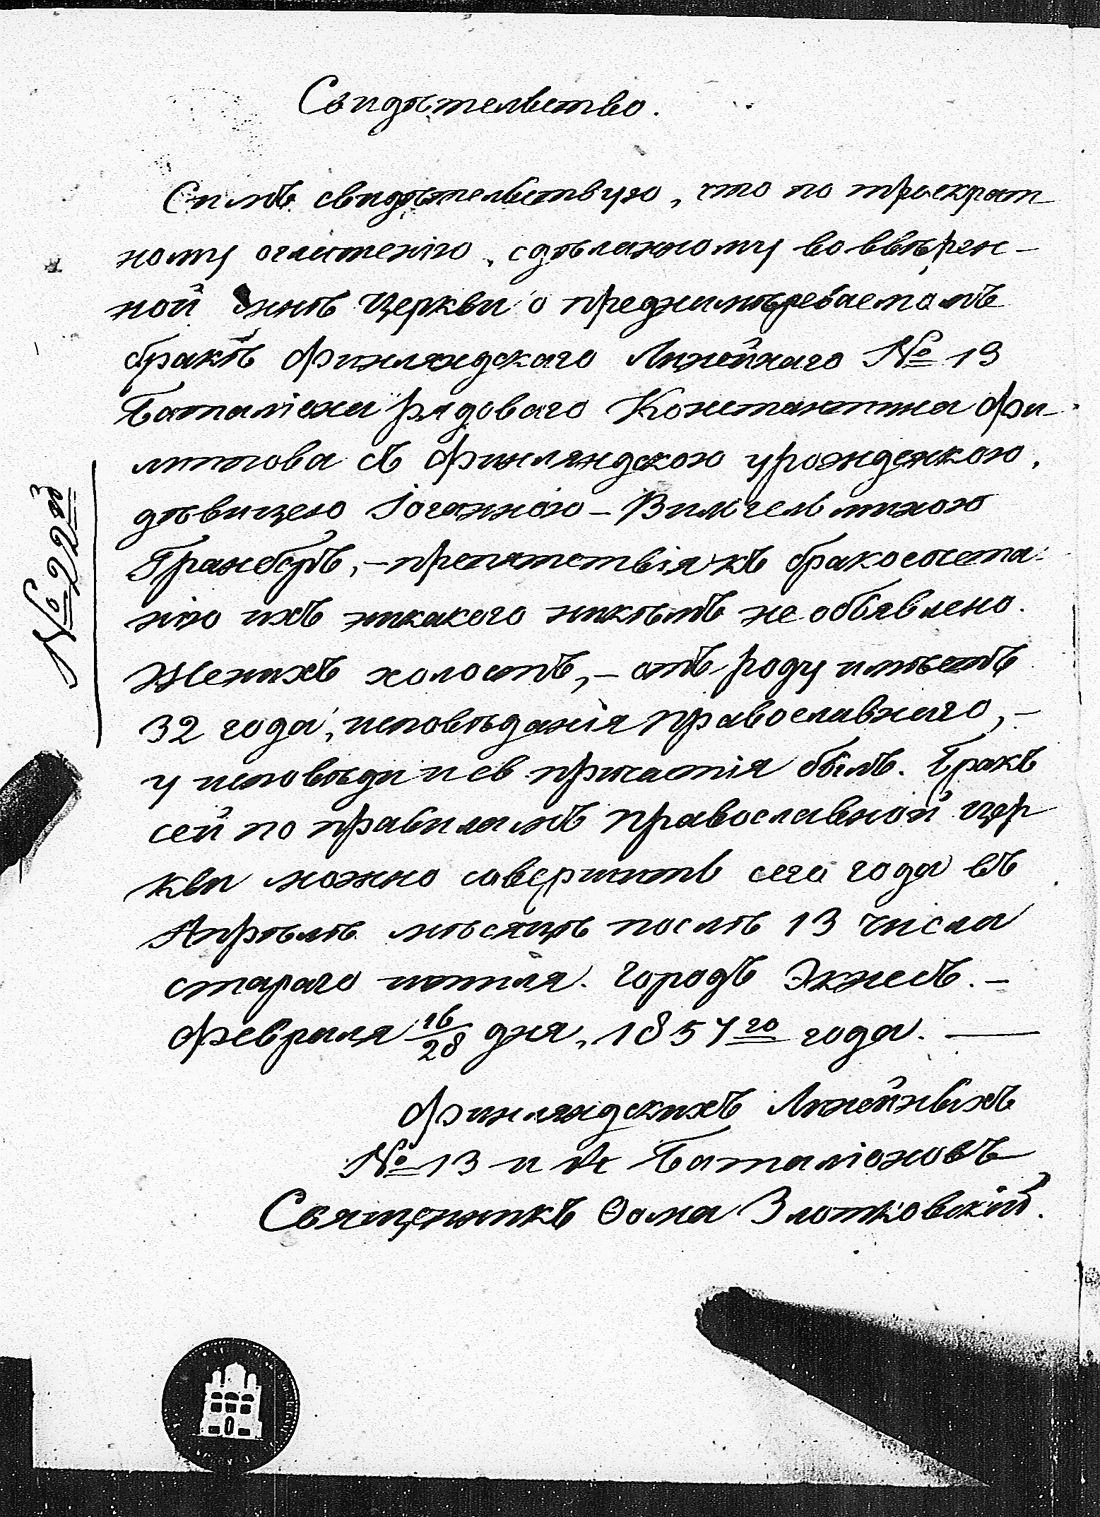 Свидѣтельство.
Симъ свидѣтельствую, что по троекрат
ному оглашенію, сдѣланному во ввѣрен-
ной мнѣ Церкви о преднамѣреваемомъ
бракѣ Финляндскаго Линейнаго № 13
Баталіона рядоваго Константина Фи-
липпова съ Финляндскою урожденкою,
дѣвицею Іоганною-Вильгельминою
Гранбергъ, - препятствія къ бракосочета-
нію ихъ никакого никѣмъ не объявлено.
Женихъ холостъ, - отъ роду имѣетъ
32 года, исповѣданія православнаго, -
у исповѣди и св. причастія былъ. Бракъ
сей по правиламъ православной цер
кви можно совершить сего года въ
Апрѣлѣ мѣсяцѣ послѣ 13 числа
стараго штиля. Городъ Экнесъ. -
Февраля 16/28 дня, 1857го года.
Финляндскихъ Линейныхъ
№ 13 и Баталіоновъ
Священникъ Ѳома Злотковскій.
№ 22й